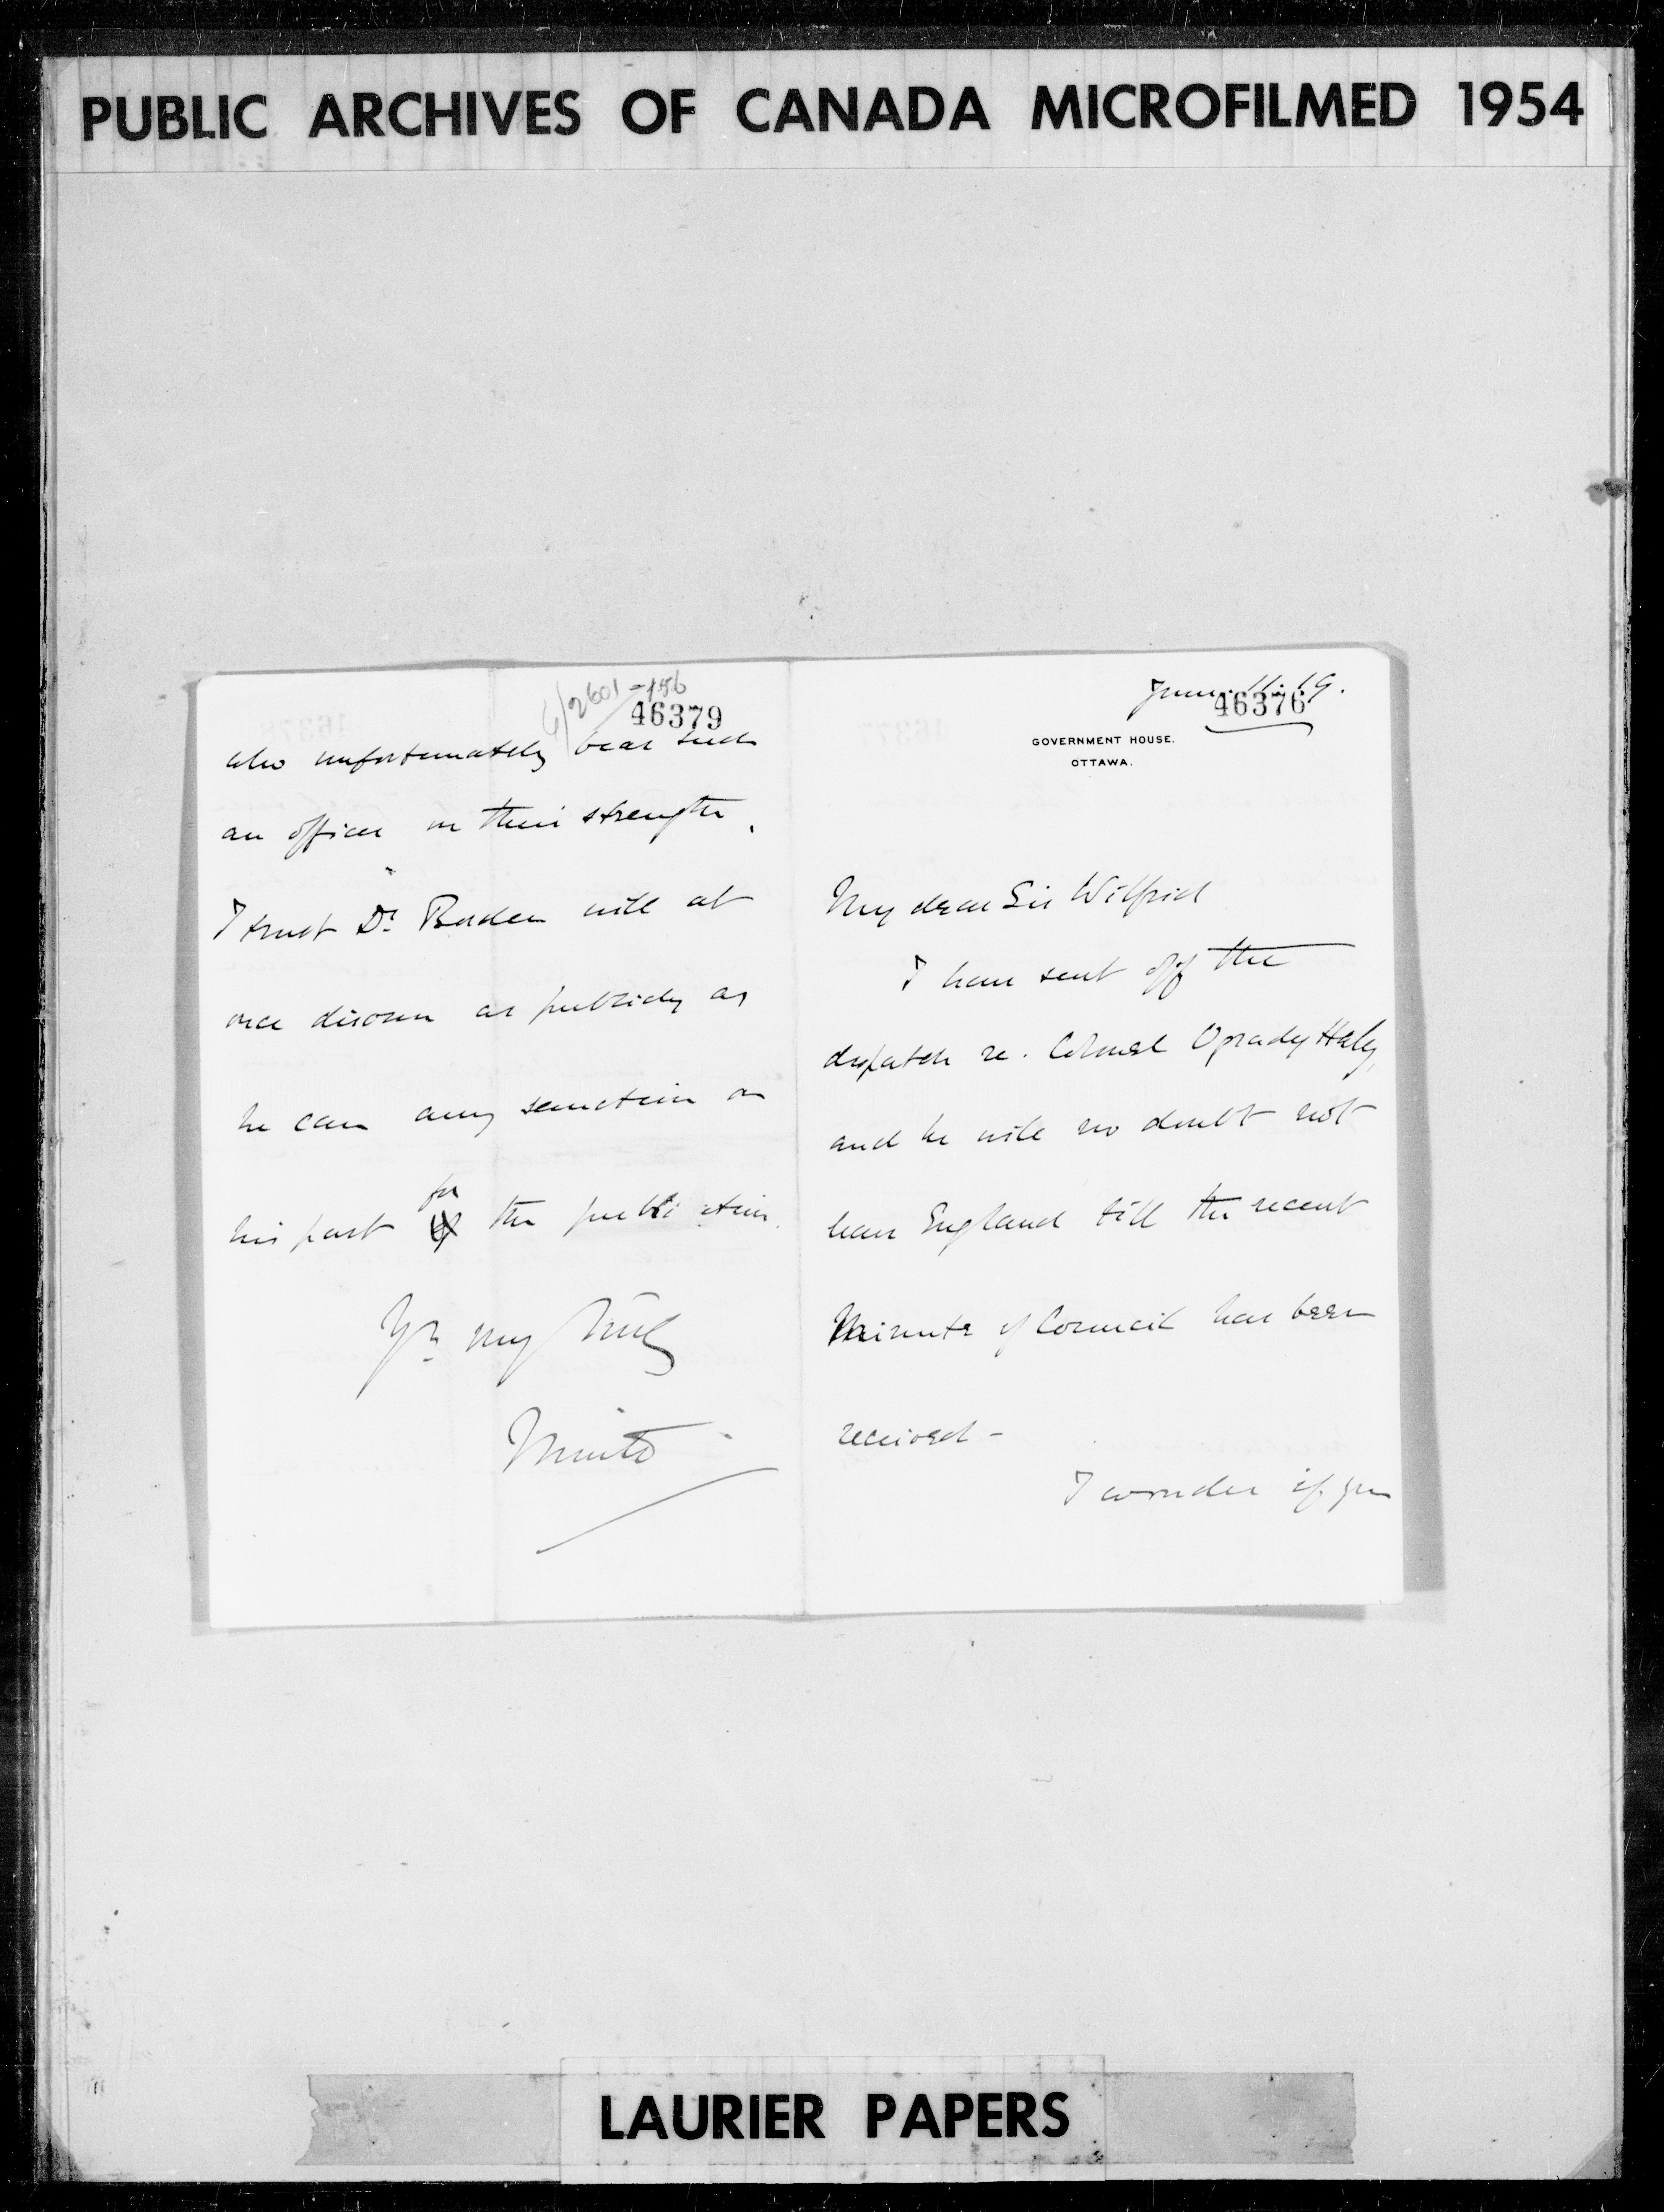 PUBLIC ARCHIVES OF CANADA MICROFILMED 1954
6/2601-156
46379
who unfortunately bear such
an officer on their strength.
I trust Dr Borden will at
once disown as publicly as
he can any sanction on
his part for the publication.
Yrs very truly
Minto
June 11. 19.
46376
GOVERNMENT HOUSE.
OTTAWA.
My dear Sir Wilfrid
I have sent off the
dispatch re. Colonel Ogrady Haly,
and he will no doubt not
leave England till the recent
Minute of Council has been
received -
I wonder if you
LAURIER PAPERS